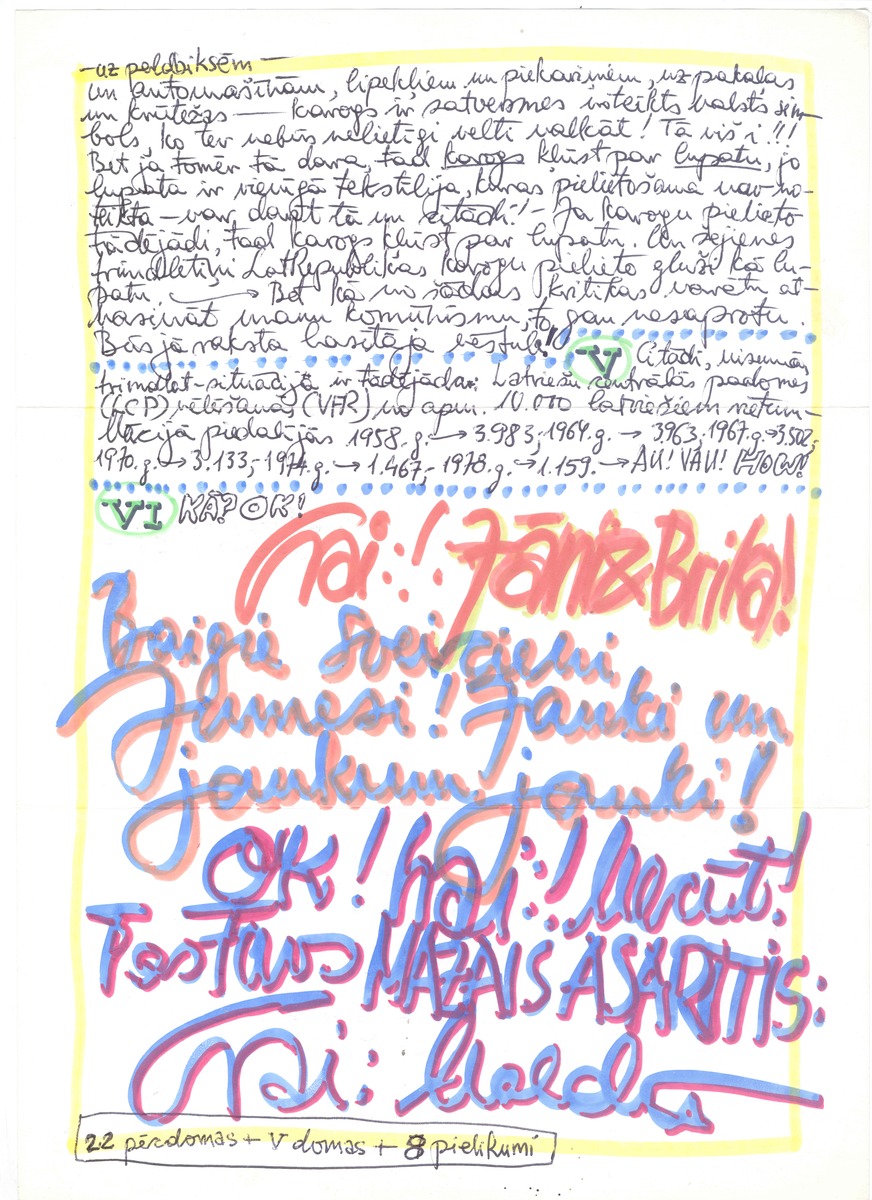 —uz peldbiksēm—
un automašīnām, lipekļiem un piekariņiem, uz pakaļas
un krūtežas — karogs ir satversmes noteikts valsts sim-
bols, ko tev nebūs nelietīgi velti valkāt! Tā viš i!!!
Bet ja tomēr tā dara, tad karogs kļūst par lupatu, jo
lupata ir vienīgā tekstīlija, kuras pielietošana nav no-
teikta — var darīt tā un citādi! — Ja karogu pielieto
tādējādi, tad karogs kļūst par lupatu. Un šejienes
trimdlētiņi LatRepublikas karogu pielieto gluži kā lu-
patu. → Bet kā no šādas kritikas varētu at-
vasināt manu komūnismu, to gan nesaprotu.
Būs jā raksta lasītāja vēstule!"
V Citādi, visumā,
trimdlet-situācijā ir tādējāda: Latviešu centrālās padomes
(LCP) vēlēšanās (VFR) no apm. 10.000 latviešiem rietum-
vācijā piedalījās 1958.g. → 3.983,-1964.g. → 3963,-1967.g.→3.502,-
1970.g.→ 3.133,-1974.g.→ 1.467,- 1978.g.→1.159.→AU! VAU! HOW!
VI KĀ? OK!
Vai:! Jānis & Brita!
Baigie sveicieni
Jumesi! Jauki un
jaukum jauki!
OK! hai:! Urrāt!
Testāvs MAZAIS ASARĪTIS:
Vai: Vald
22 pārdomas + V domas + 8 pielikumi